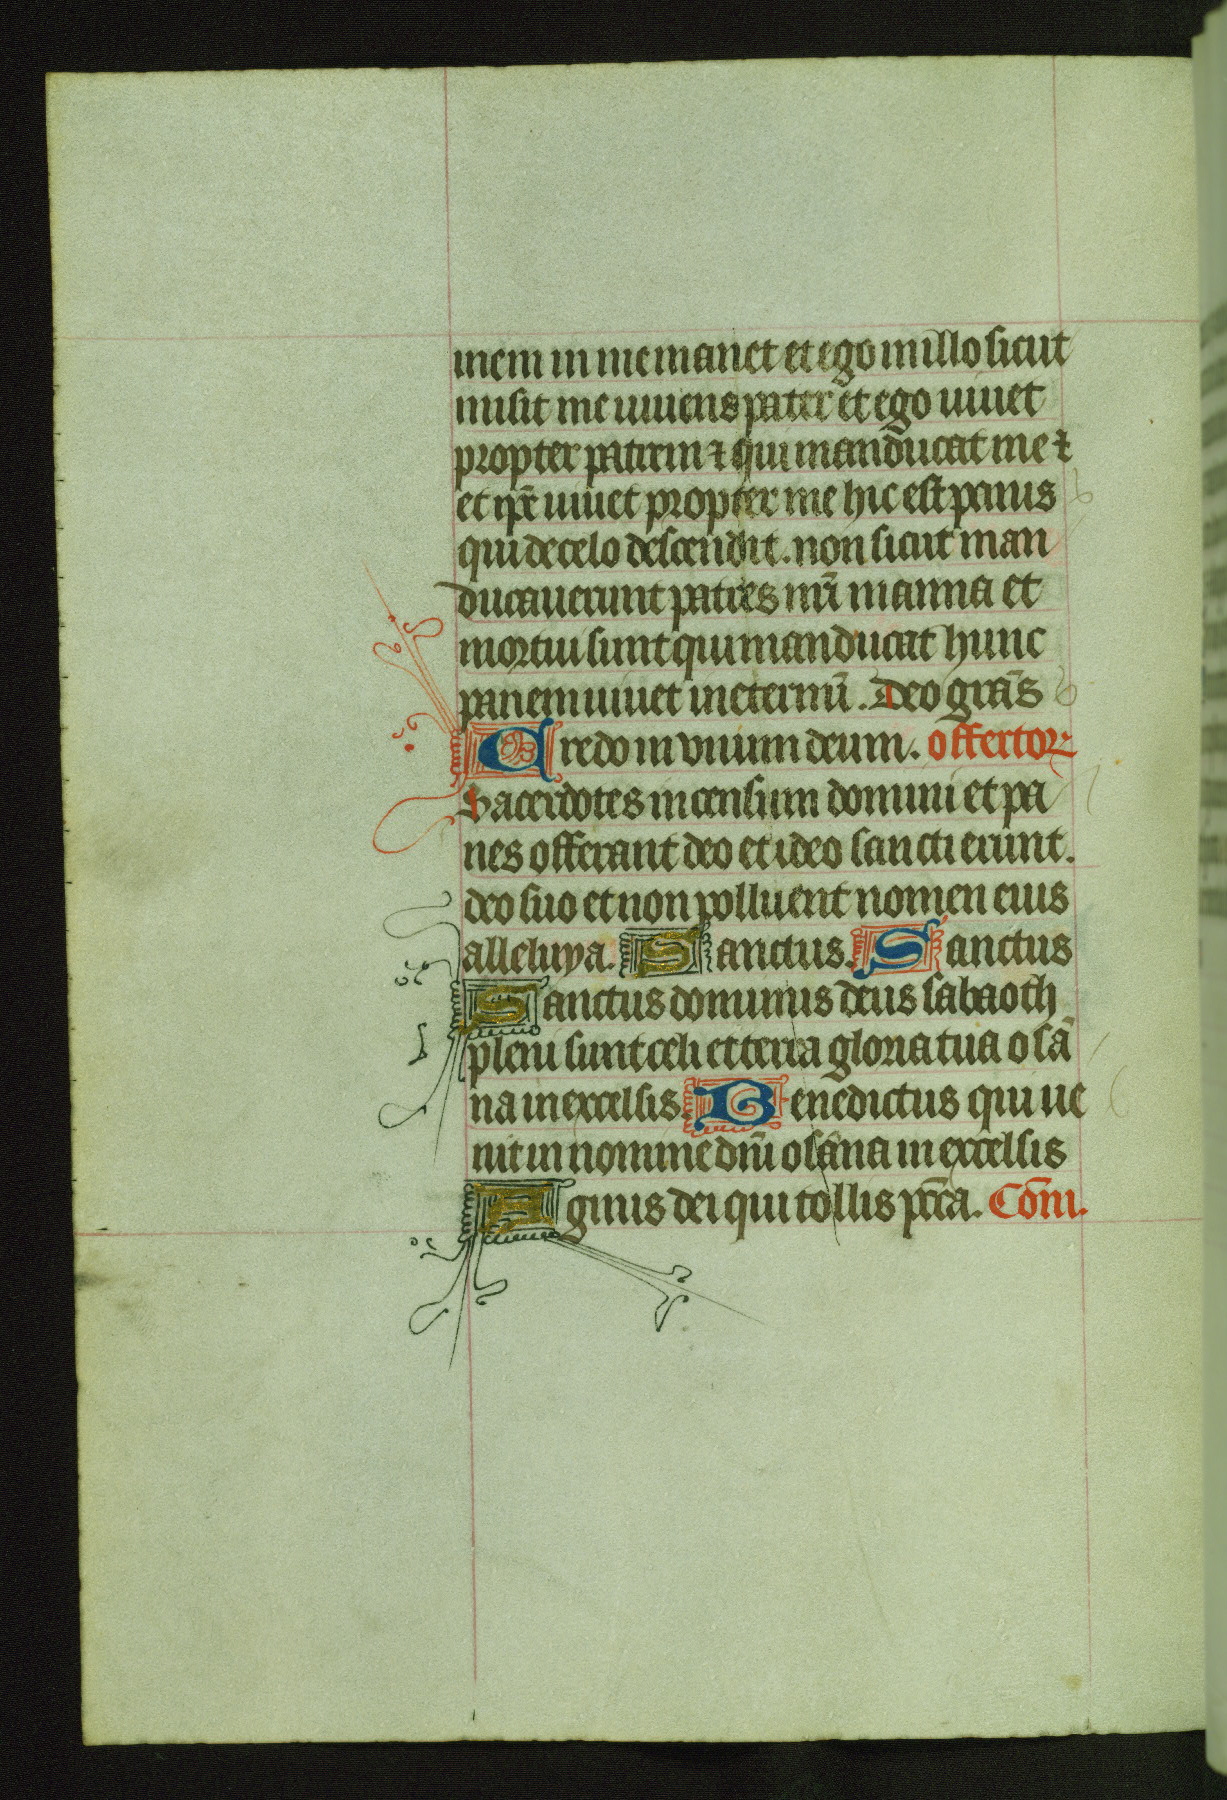 inem in me manet et ego in illo sicut
misit me uiuens pater et ego uiuet
propter patrem ⁊ qui manducat me ⁊
et ip̄e uiuet propter me hic est panis
qui de celo descendit. non sicut man
ducauerunt patres nr̄i manna et
mortui sunt qui manducat hunc
panem uiuet in eternū. Deo grās
Credo in vnum deum. offertor
Sacerdotes incensum domini et pa
nes offerant deo et ideo sancti erunt.
deo suo et non polluent nomen eius
alleluya. Sanctus. Sanctus
Sanctus dominus deus sabaoth
pleni sunt celi et terra gloria tua osā
na in excelsis. Benedictus qui ue
nit in nomine dn̄i osāna in excelsis
Agnus dei qui tollis pcc̄a. Com̄.